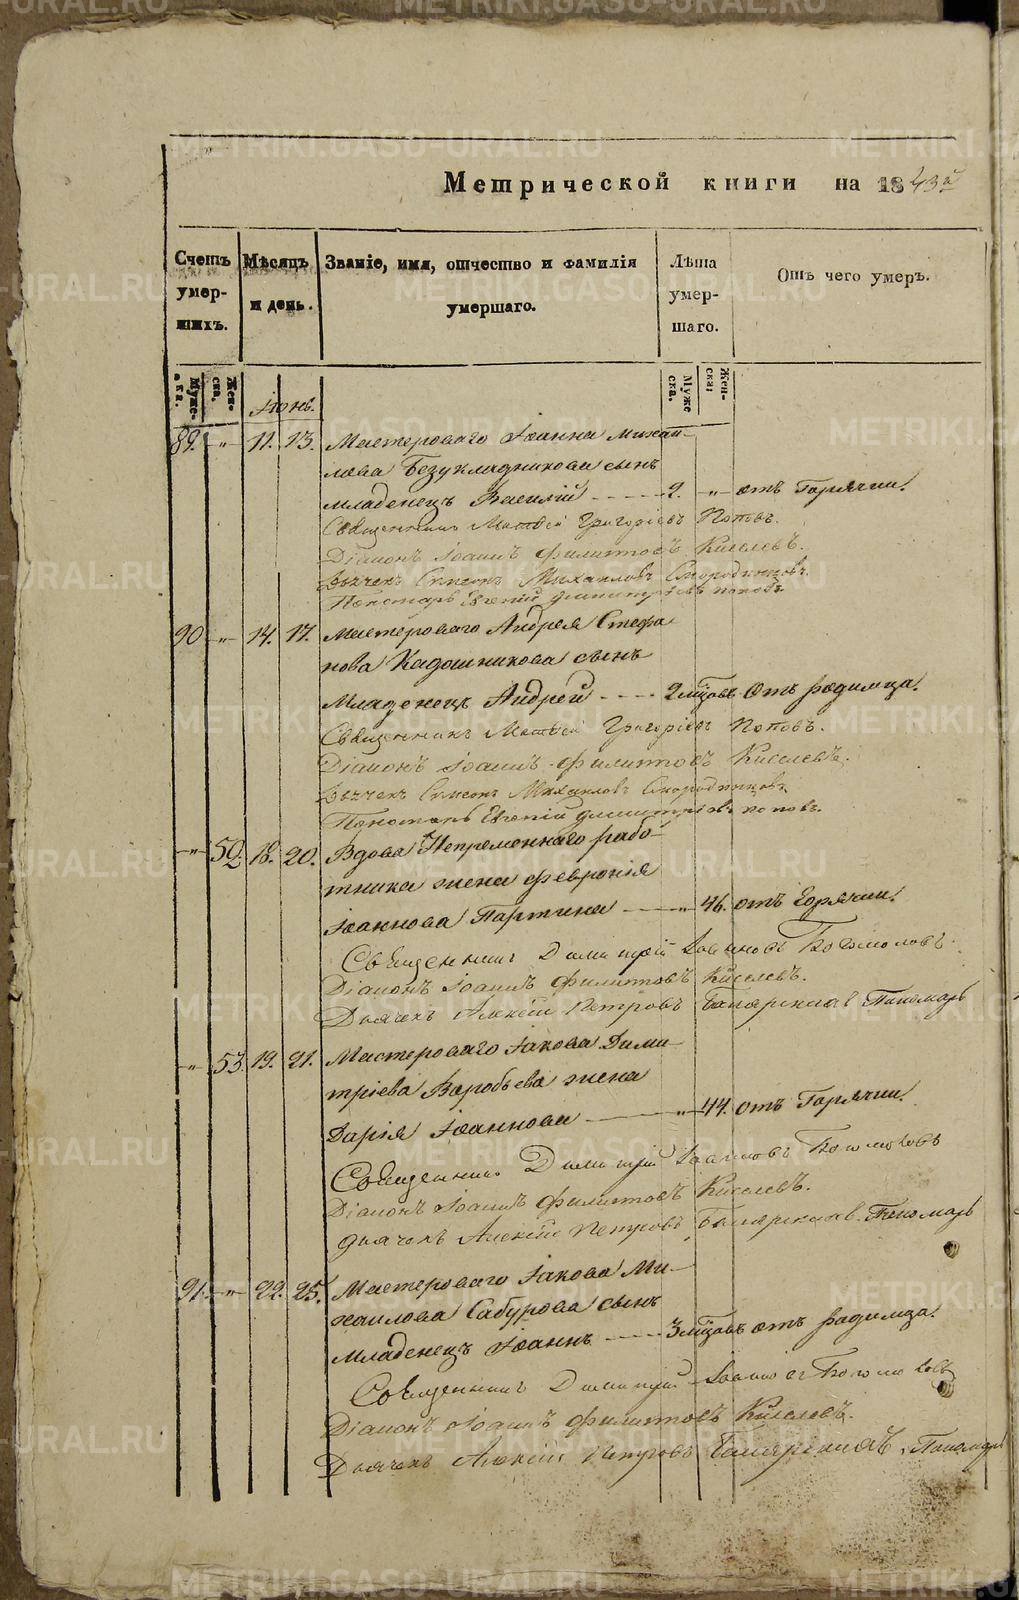 Метрической книги на 1843й
Счетъ умер- шихъ.
Мѣсяцъ и день.
Званіе, имя, отчество и фамилія умершаго.
Лѣта умер- шаго.
Отъ чего умеръ.
Муже- ска.
Жен- ска.
Муже ска.
Жен- ска.
Іюнь.
89. „ 11. 13. Мастероваго Іоанна Михаи-
лова Безукладникова сынъ
младенецъ Василій 2. „ отъ Горячки.
Священникъ Матвей Григоріевъ Поповъ.
Діаконъ Іоаннъ Филиповъ Киселевъ.
Дьячекъ Симеонъ Михаиловъ Смородинковъ.
Пономарь Евгеній Димитріевъ Поповъ.
90 „ 14. 17. Мастероваго Андрея Стефа
нова Кадошникова сынъ
Младенецъ Андрей 2 мцовъ Отъ Родимца.
Священникъ Матвей Григоріевъ Поповъ.
Діаконъ Іоаннъ Филиповъ Киселевъ.
Дьячекъ Симеонъ Михаиловъ Смородинковъ
Пономарь Евгеній Димитріевъ Поповъ.
„ 52. 18. 20. Вдова Непременнаго рабо-
тника жена Февронія
Іоаннова Партина „ 46. отъ Горячки.
Священникъ Димитрій Іоанновъ Богомоловъ.
Діаконъ Іоаннъ Филиповъ Киселевъ.
Дьячекъ Алексій Петровъ Пономарь
„ 53. 19. 21. Мастероваго Іакова Дими-
тріева Воробьева жена
Дарія Іоаннова „ 44. отъ Горячки.
Священникъ Димитрій Іоанновъ Богомоловъ
Діаконъ Іоаннъ Филиповъ Киселевъ.
Дьячекъ Алексій Петровъ Пономарь
91. „ 22. 25. Мастероваго Іакова Ми-
хаилова Сабурова сынъ
Младенецъ Іоаннъ 3 мцовъ отъ Родимца.
Священникъ Димитрій Іоанновъ Богомоловъ
Діаконъ Іоаннъ Филиповъ Киселевъ.
Дьячекъ Алексій Петровъ Пономарь
METRIKI.GASO-URAL.RU